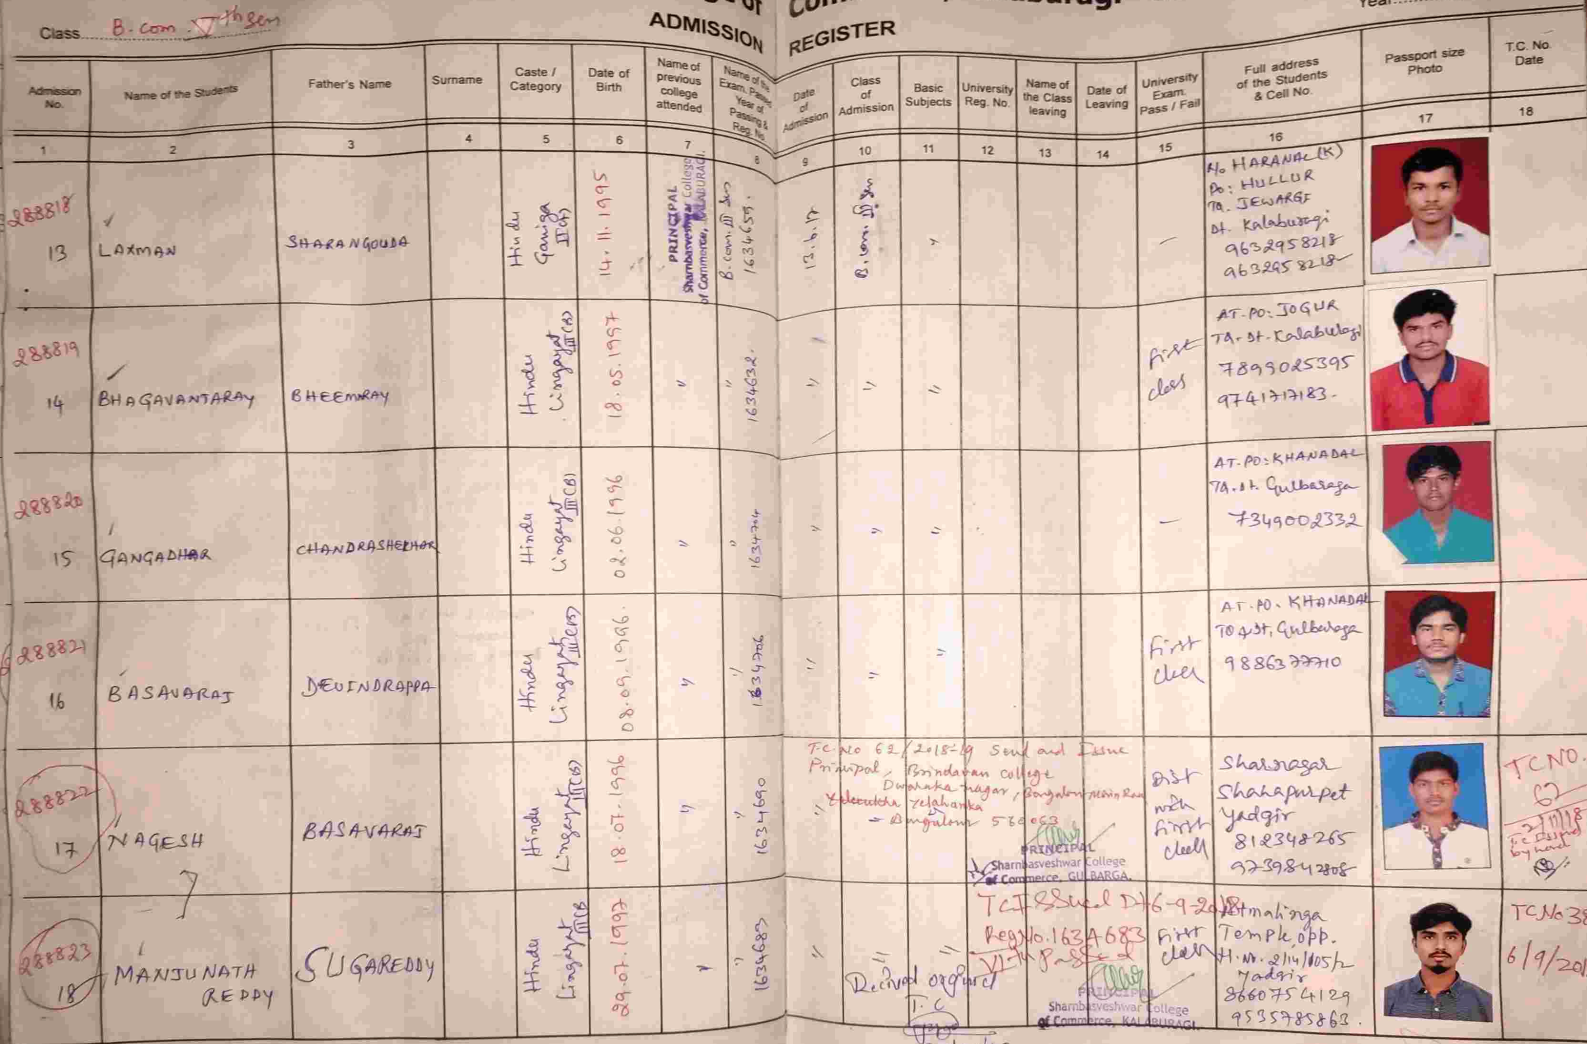 Class B.com. Vth Sem
ADMISSION REGISTER
Admission No.
Name of the Students
Father's Name
Surname
Caste / Category
Date of Birth
Name of previous college attended
Name of the Exam. Passed Year of Passing & Reg. No.
Date of Admission
Class of Admission
Basic Subjects
University Reg. No.
Name of the Class leaving
Date of Leaving
University Exam. Pass / Fail
Full address of the Students & Cell No.
Passport size Photo
T.C. No. Date
1 2 3 4 5 6 7 8 9 10 11 12 13 14 15 16 17 18
288818
13
LAXMAN
SHARANGOUDA
Hindu
Ganiga
14.11.1995
PRINCIPAL
Sharnbasveshwar College
of Commerce, KALABURAGI.
B.com. III Sem
1634659.
13.6.17
B.com. III Sem
"
—
R/o HARANAL (K)
Po: HULLUR
Ta. JEWARGI
Dt. Kalaburagi
9632958218
9632958218
288819
14
BHAGAVANTARAY
BHEEMRAY
Hindu
Lingayat
III(B)
18.05.1997
"
"
1634632.
"
"
"
First
class
AT.PO: JOGUR
TA. Dt. Kalaburagi
7899025395
9741717183.
288820
15
GANGADHAR
CHANDRASHEKHAR
Hindu
Lingayat
III(B)
02.06.1996
"
"
1634704
"
"
"
—
AT.PO: KHANADAL
TA. Dt. Gulbaraga
7349002332
288821
16
BASAVARAJ
DEVINDRAPPA
Hindu
Lingayat
III(B)
08.09.1996.
"
"
1634706
"
"
"
First
class
AT.PO. KHANADAL
Gulbaraga
9886377710
288822
17
NAGESH
BASAVARAJ
Hindu
Lingayat
III(B)
18.07.1996
"
"
1634690
"
T.C. No 62/2018-19 Send and Issue
Principal, Brindavan College
Dwaraka Nagar, Bangalore Main Road
Yelahanka
Bangalore 560063
PRINCIPAL
Sharnbasveshwar College
of Commerce, GULBARGA.
Dist
with
First
class
Shahapurpet
Yadgir
812348265
9739842808
TC NO.
62
by hand
288823
18
MANJUNATH
REDDY
SUGAREDDY
Hindu
Lingayat
III(B
29.07.1997
"
"
1634683
"
"
"
TC ISSued Dt 6-9-2018
Reg No. 1634683
VI th Passed
Received original
T.C
PRINCIPAL
Sharnbasveshwar College
of Commerce, KALABURAGI.
First
class
Temple opp.
H.No. 2/14/105/2
Yadgir
8660754129
9535785863.
TC No 38
6/9/201